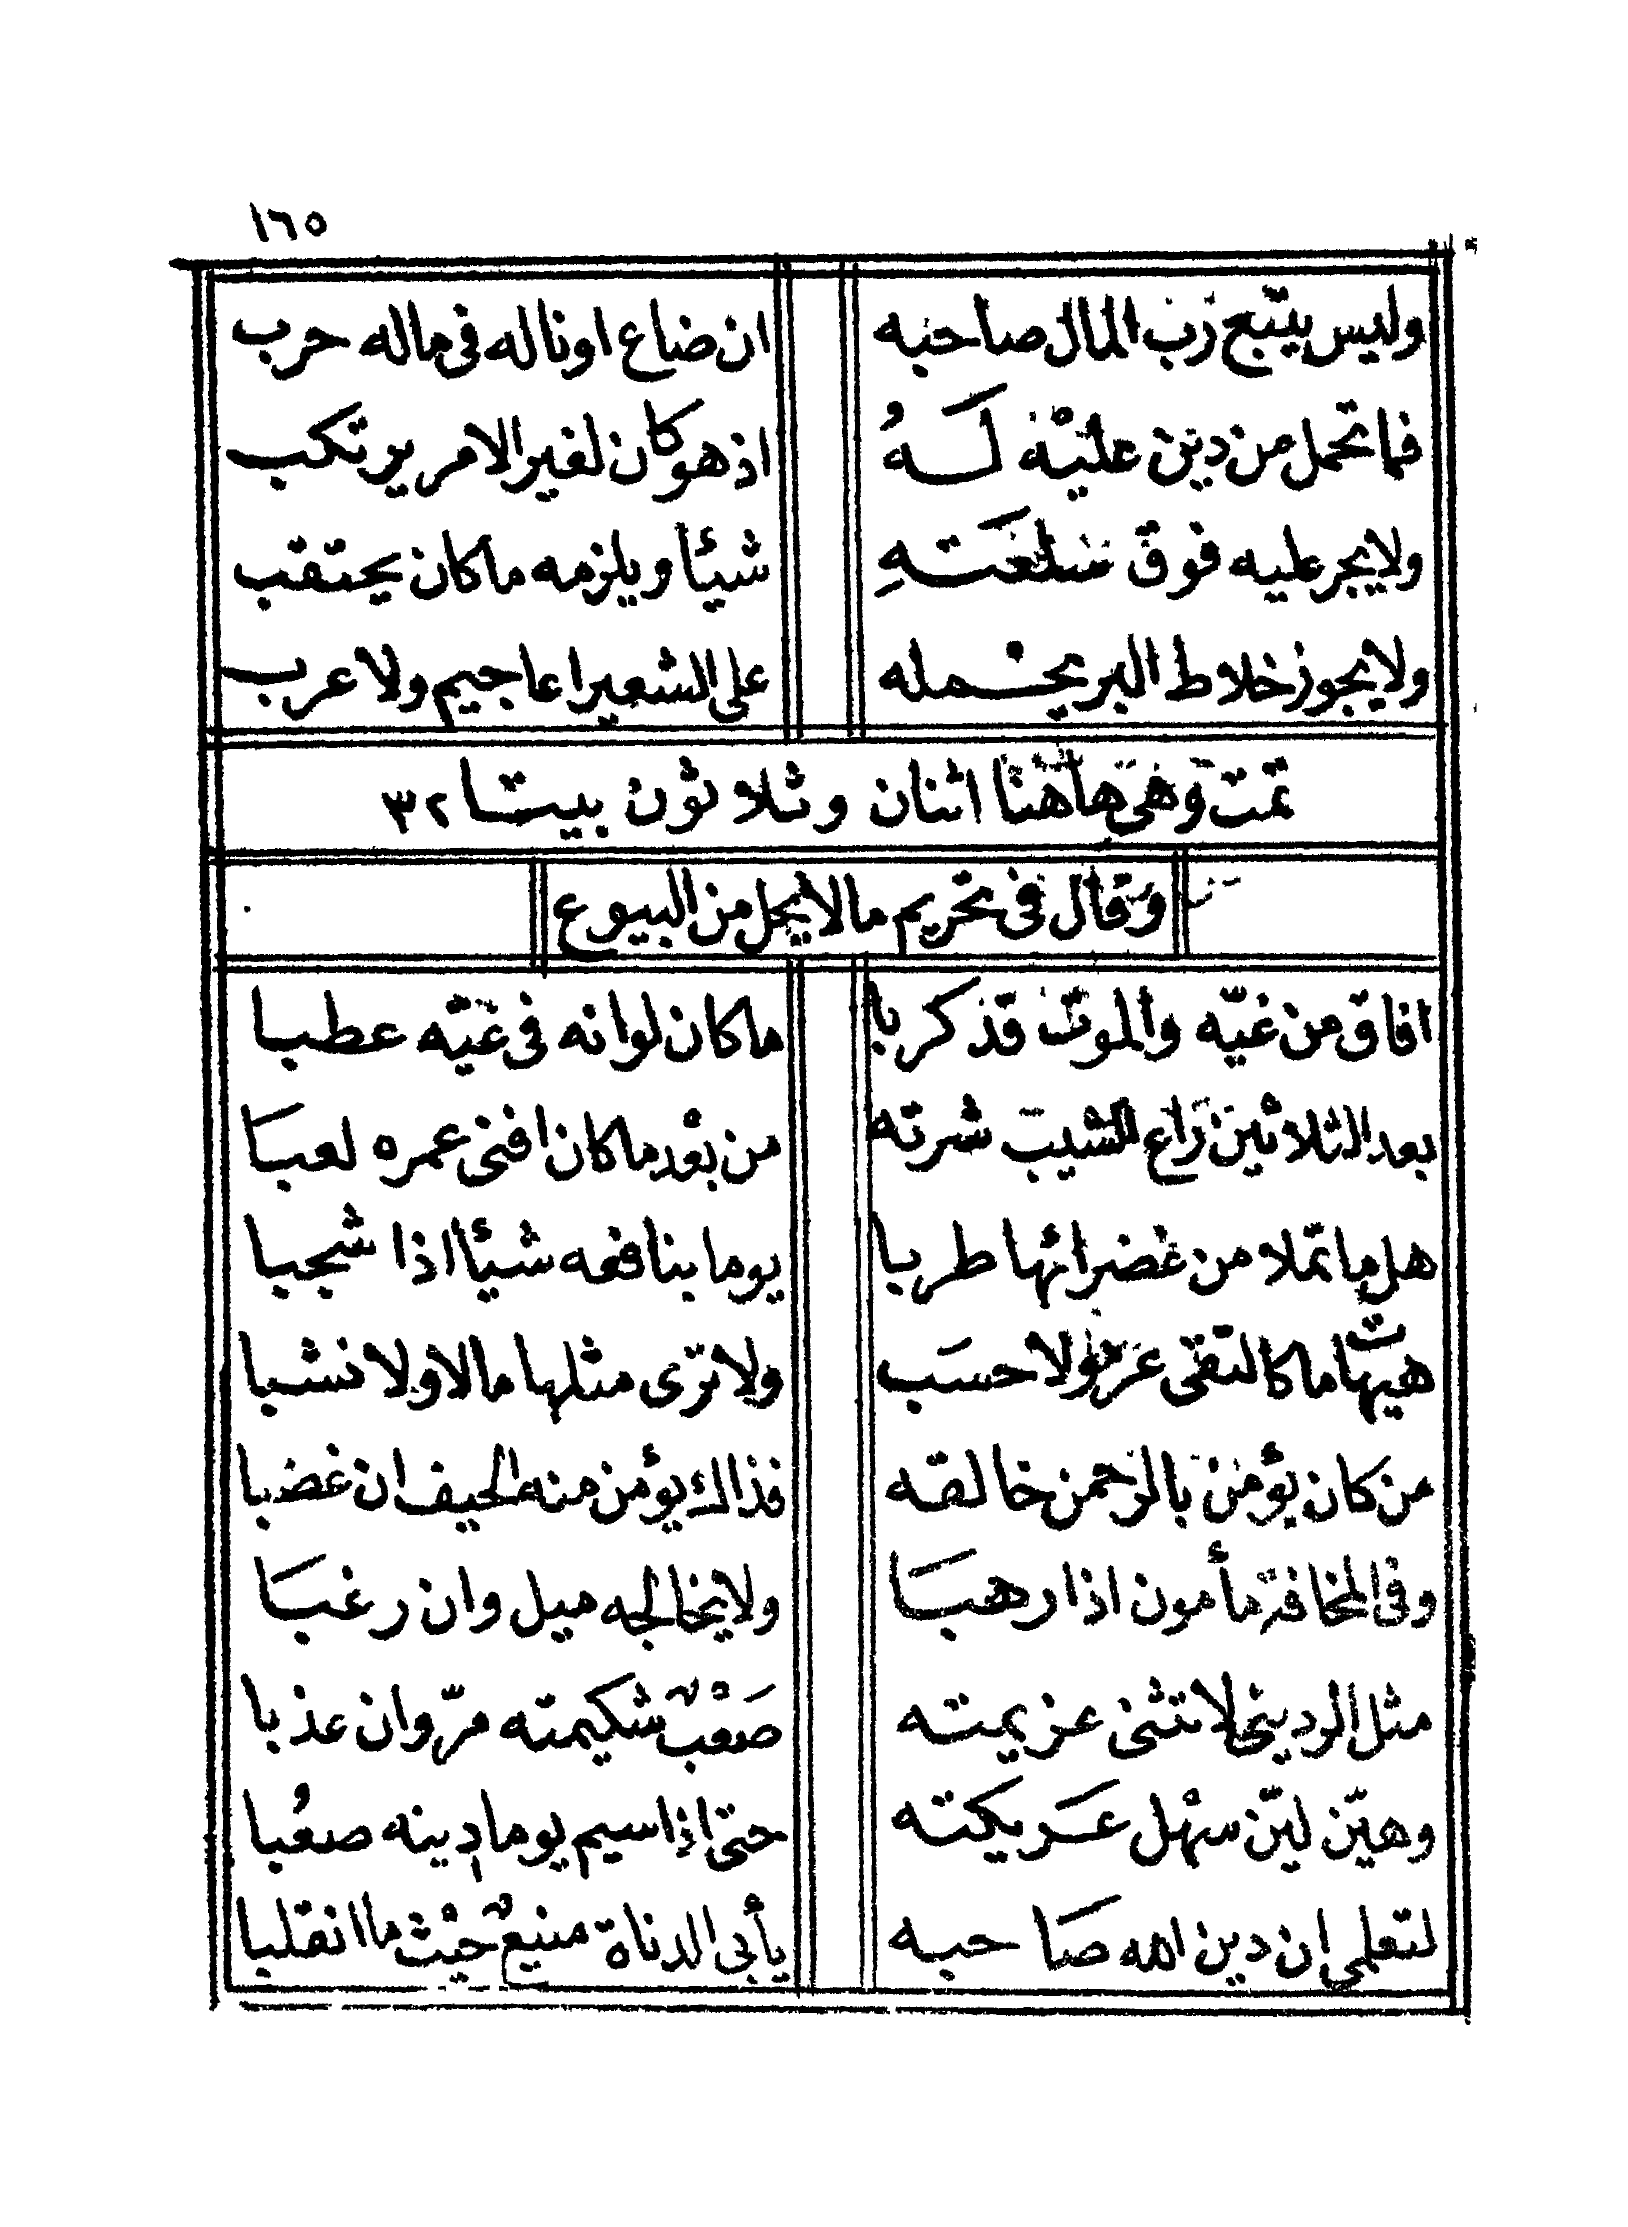 ١٦٥
وليس يتبع رب المال صاحبه ان ضاع او ناله في ماله حرب
فما تحمل من دين عليه له اذ هو كان لغير الامر يرتكب
ولا يجر عليه فوق سلعته شيئا ويلزمه ما كان يحتقب
ولا يجوز خلاط البر يحمله على الشعير اعاجيم ولا عرب
تمت وهي هاهنا اثنان وثلاثون بيتا ٣٢
وقال في تحريم ما لا يحل من البيوع
افاق من غيّه والموت قد كربا ما كان لو انه في غيّه عطبا
بعد الثلاثين راع الشيب شرته من بعد ما كان افنى عمره لعبا
هل ما تملا من غضرائها طربا يوما بنافعه شيئا اذا شجبا
هيهات ما كالتقى عز ولا حسب ولا ترى مثلها مالا ولا نشبا
من كان يؤمن بالرحمن خالقه فذاك يؤمن منه الحيف ان غضبا
وفي المخافة مأمون اذا رهبا ولا يخالجه ميل وان رغبا
مثل الرديني لا تثنى عزيمته صعب شكيمته مرّ وان عذبا
وهيّن ليّن سهل عريكته حتى اذا سيم يوما دينه صعبا
لتعلمي ان دين الله صاحبه يأبى الدناة منيع حيث ما انقلبا